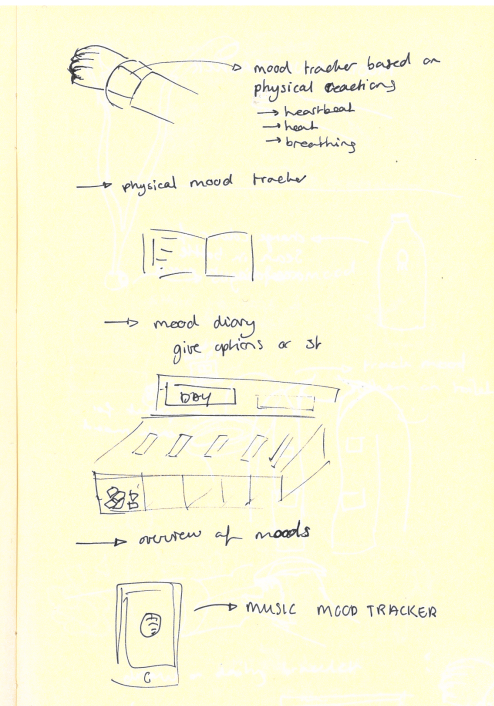 mood tracker based on
physical reactions
→ heartbeat
→ heat
→ breathing
→ physical mood tracker
→ mood diary
give options or st
DAY
→ overview of moods
→ MUSIC MOOD TRACKER